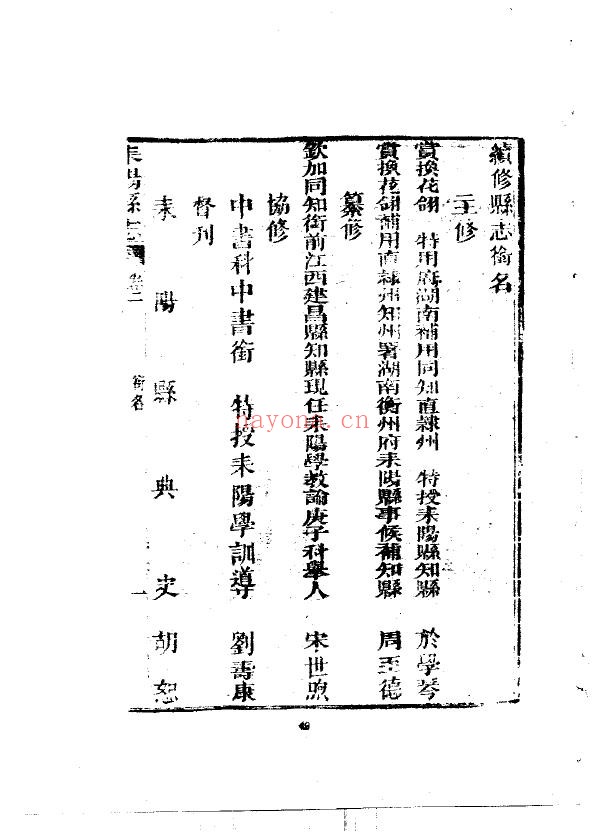 續修縣志銜名
主修
賞換花翎 特用府湖南補用同知直隸州 特授耒陽縣知縣 於學琴
賞換花翎補用直隸州知州署湖南衡州府耒陽縣事候補知縣 周至德
纂修
欽加同知銜前江西建昌縣知縣現任耒陽學教諭庚子科舉人 宋世煦
協修
中書科中書銜 特授耒陽學訓導 劉壽康
督刊
耒陽縣典史胡恕
耒陽縣志 卷二 銜名 一
nayona.cn
49